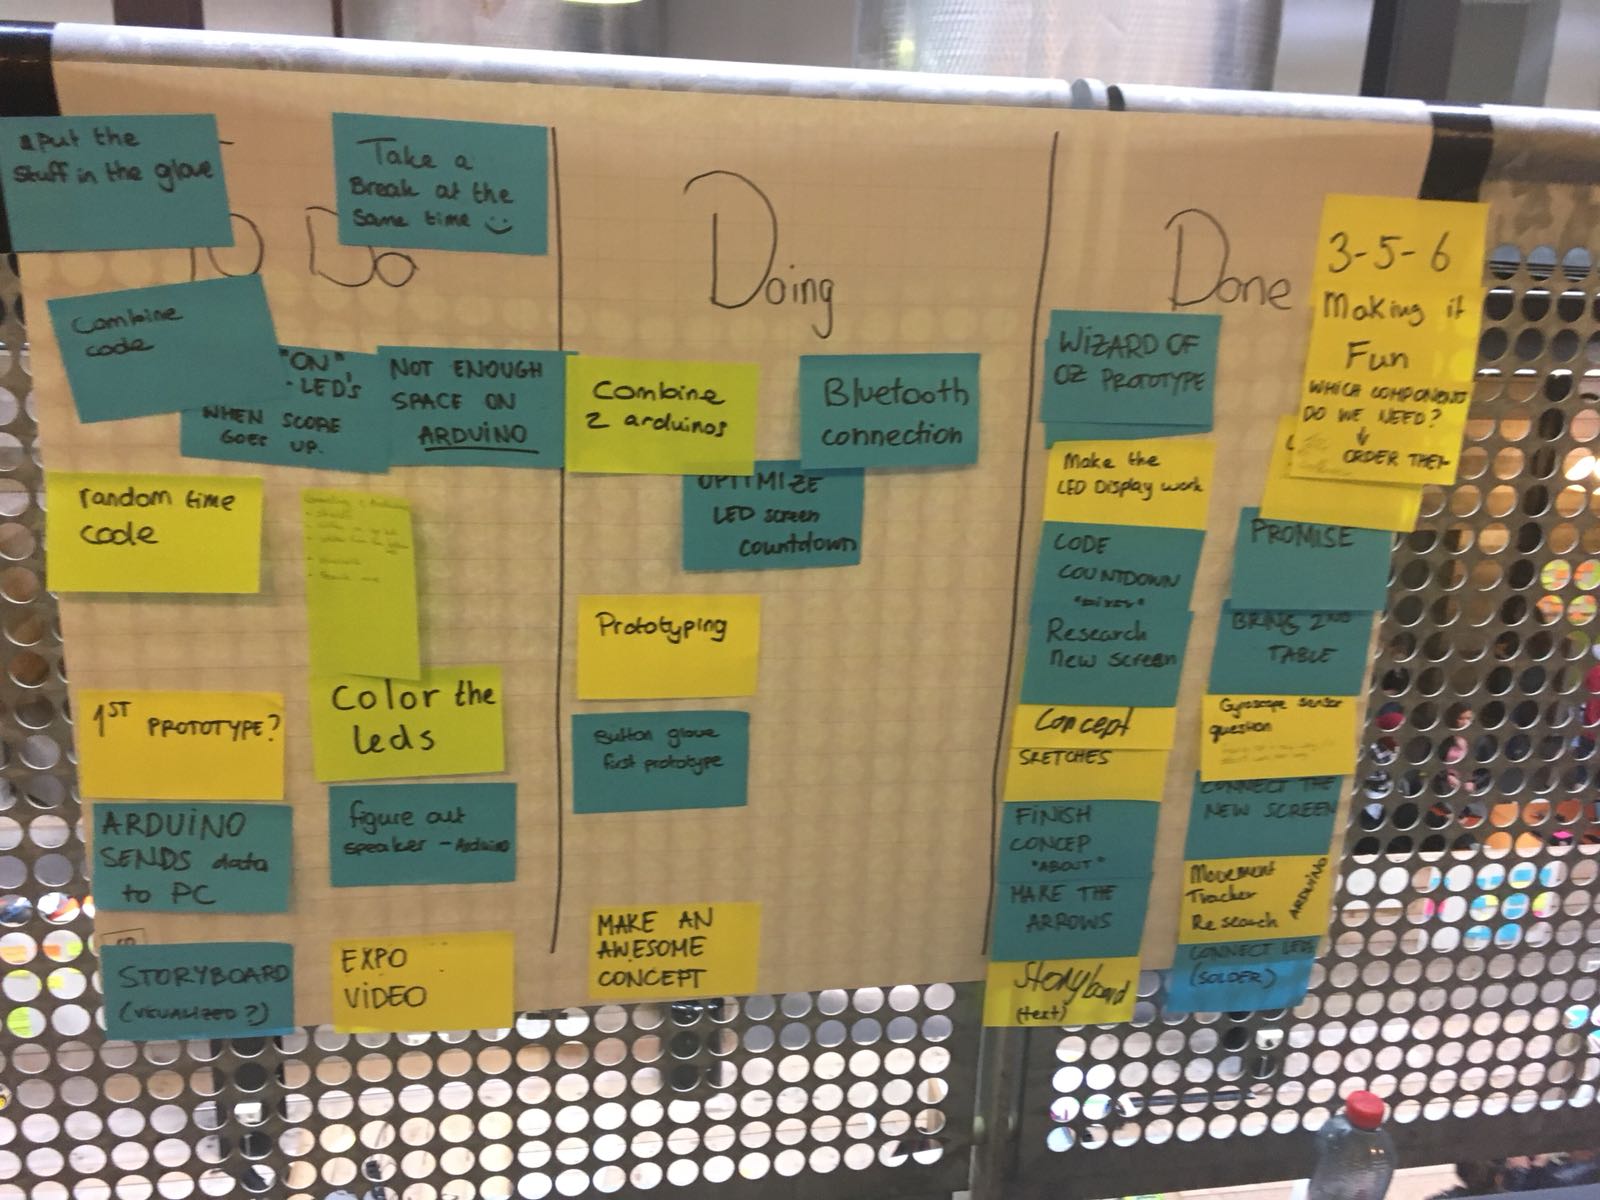 put the
stuff in the glove
Take a
Break at the
same time
To Do
Combine
code
"ON"
LED's
WHEN SCORE
GOES UP.
NOT ENOUGH
SPACE ON
ARDUINO
random time
code
1ST PROTOTYPE?
Color the
leds
ARDUINO
SENDS data
to PC
figure out
speaker - Arduino
STORYBOARD
(VISUALIZED?)
EXPO
VIDEO
Doing
Combine
2 arduinos
Bluetooth
connection
OPTIMIZE
LED screen
countdown
Prototyping
Button glove
first prototype
MAKE AN
AWESOME
CONCEPT
Done
WIZARD OF
OZ PROTOTYPE
Make the
LED Display work
CODE
COUNTDOWN
Research
new screen
Concept
SKETCHES
FINISH
CONCEP
"ABOUT"
MAKE THE
ARROWS
Storyboard
(text)
3-5-6
Making it
Fun
WHICH COMPONENTS
DO WE NEED?
ORDER THEM
PROMISE
BRING 2ND
TABLE
Gyroscope sensor
question
CONNECT THE
NEW SCREEN
Movement
Tracker
Research
ARDUINO
CONNECT LEDS
(SOLDER)